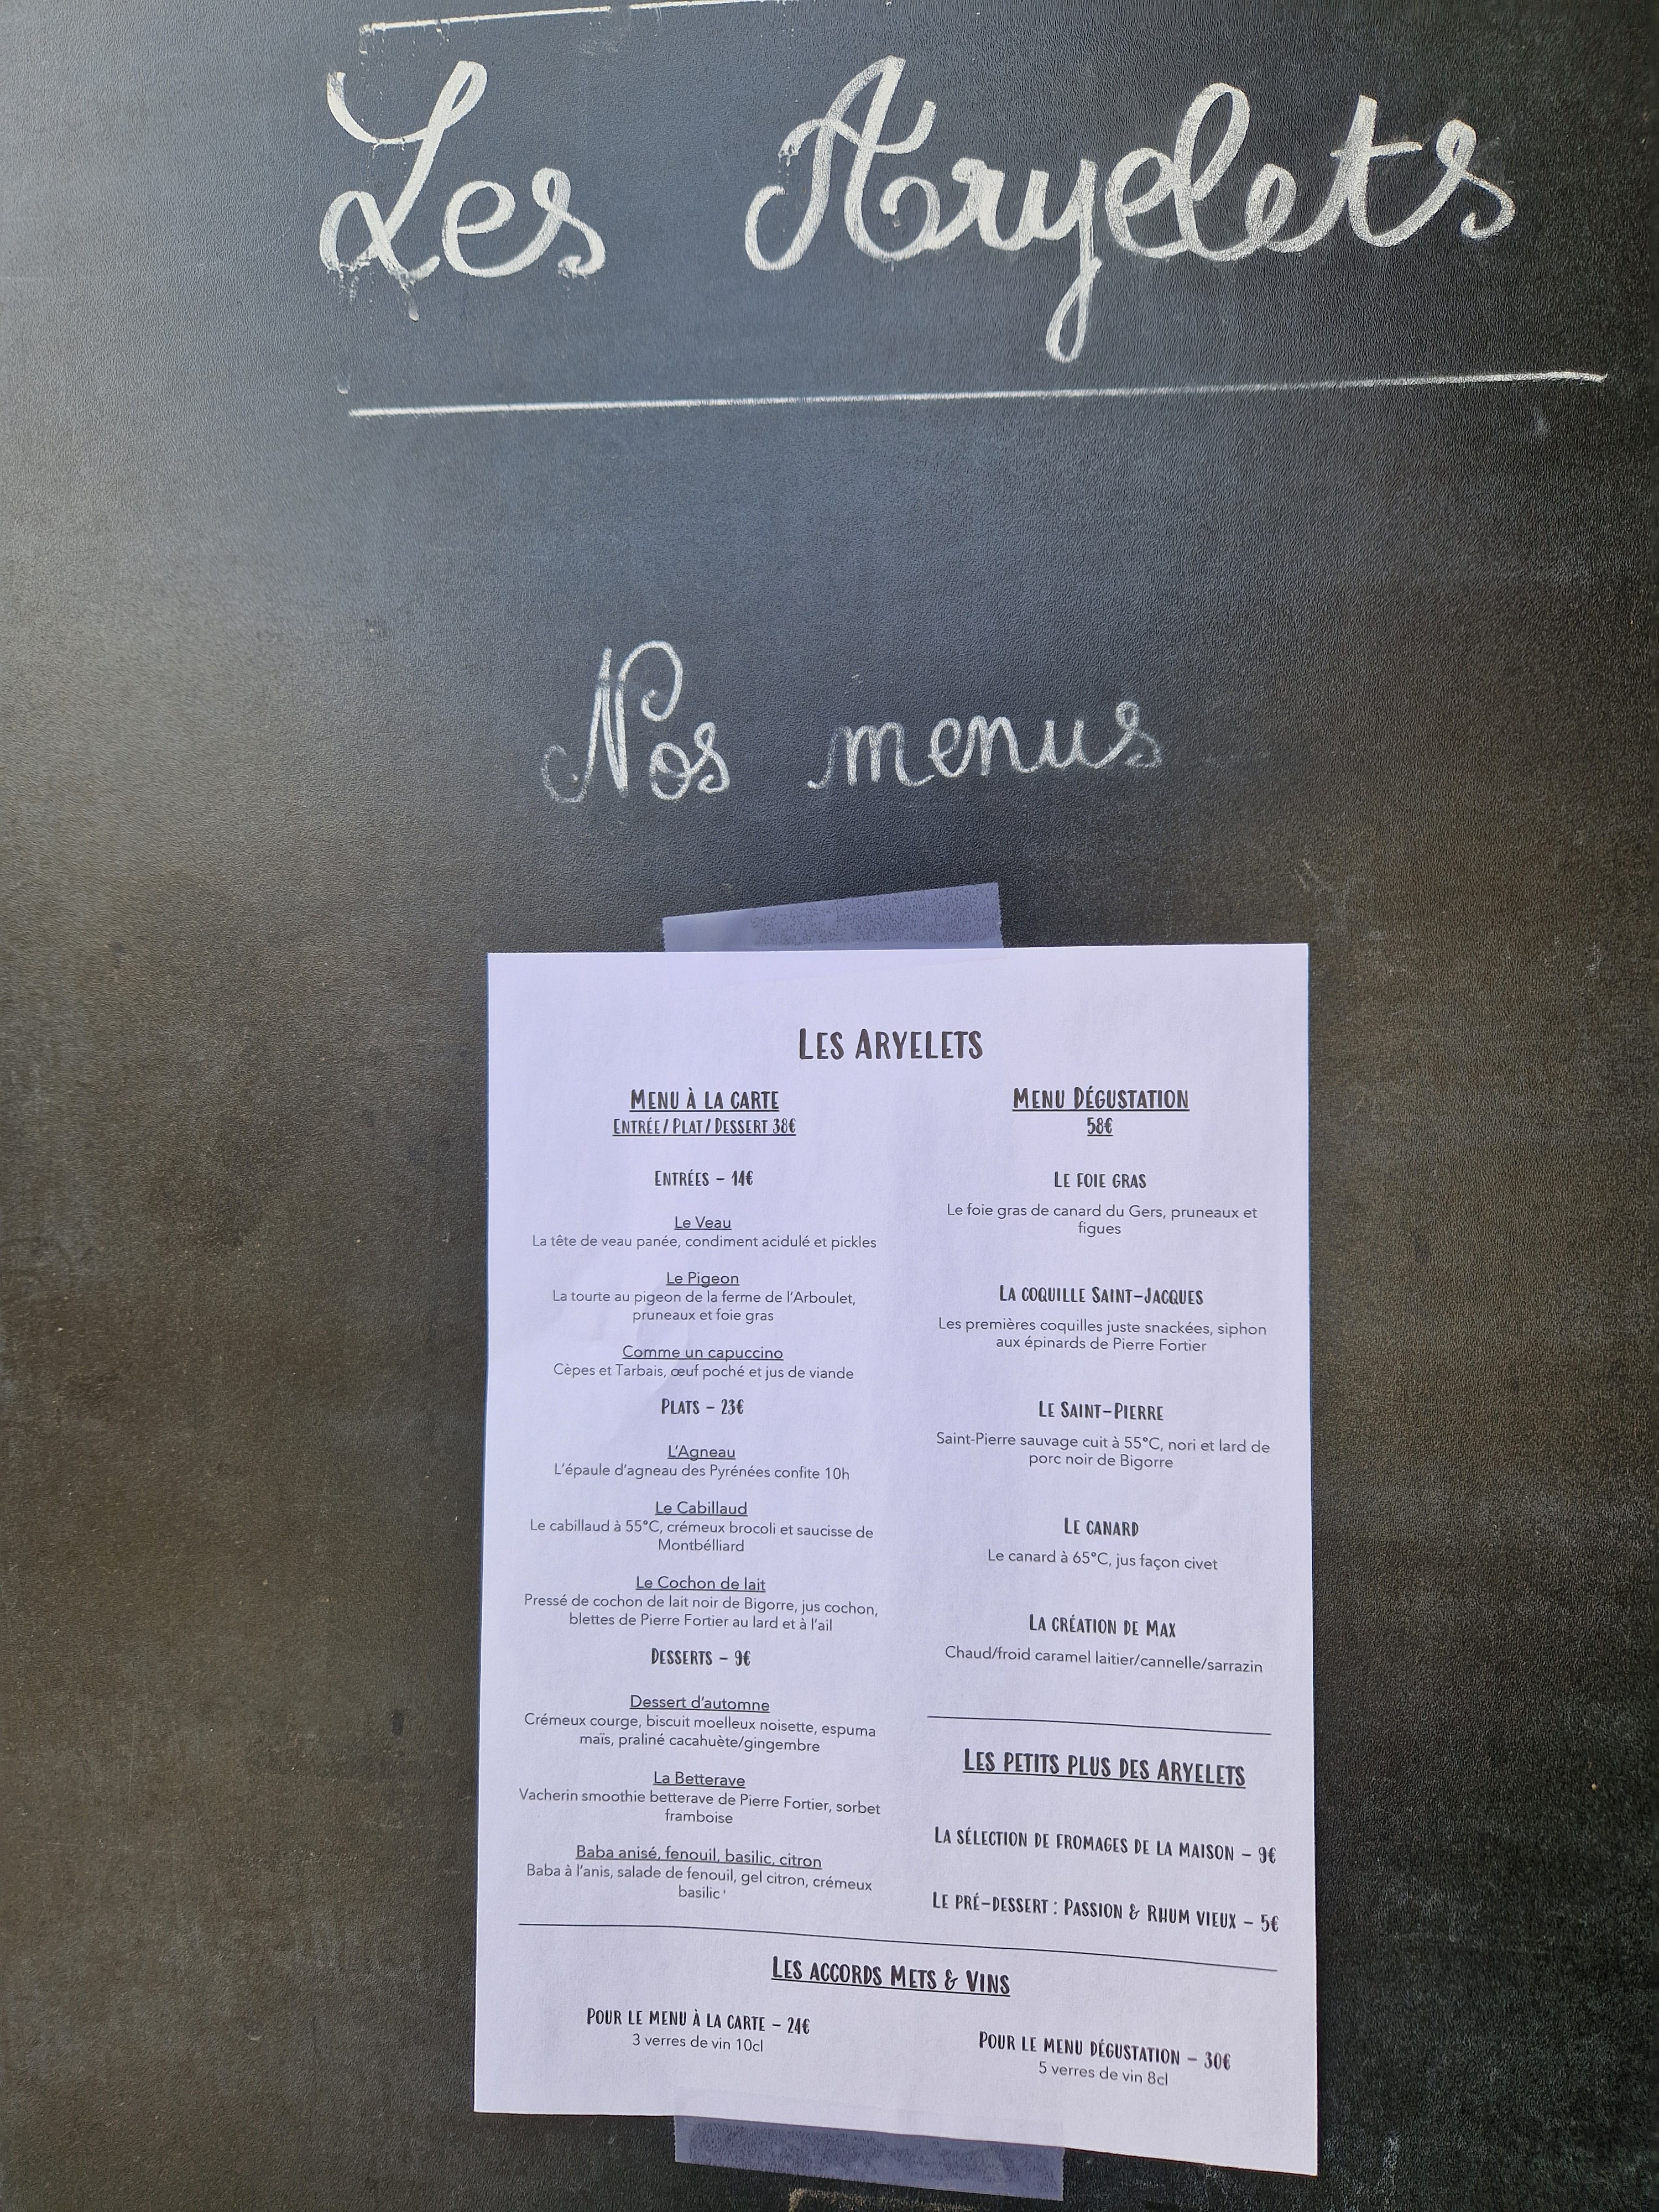 Les Aryelets
Nos menus
LES ARYELETS
MENU À LA CARTE
ENTRÉE / PLAT / DESSERT 38€
ENTRÉES – 14€
Le Veau
La tête de veau panée, condiment acidulé et pickles
Le Pigeon
La tourte au pigeon de la ferme de l'Arboulet,
pruneaux et foie gras
Comme un capuccino
Cèpes et Tarbais, œuf poché et jus de viande
PLATS – 23€
L'Agneau
L'épaule d'agneau des Pyrénées confite 10h
Le Cabillaud
Le cabillaud à 55°C, crémeux brocoli et saucisse de
Montbélliard
Le Cochon de lait
Pressé de cochon de lait noir de Bigorre, jus cochon,
blettes de Pierre Fortier au lard et à l'ail
DESSERTS – 9€
Dessert d'automne
Crémeux courge, biscuit moelleux noisette, espuma
maïs, praliné cacahuète/gingembre
La Betterave
Vacherin smoothie betterave de Pierre Fortier, sorbet
framboise
Baba anisé, fenouil, basilic, citron
Baba à l'anis, salade de fenouil, gel citron, crémeux
basilic
MENU DÉGUSTATION
58€
LE FOIE GRAS
Le foie gras de canard du Gers, pruneaux et
figues
LA COQUILLE SAINT-JACQUES
Les premières coquilles juste snackées, siphon
aux épinards de Pierre Fortier
LE SAINT-PIERRE
Saint-Pierre sauvage cuit à 55°C, nori et lard de
porc noir de Bigorre
LE CANARD
Le canard à 65°C, jus façon civet
LA CRÉATION DE MAX
Chaud/froid caramel laitier/cannelle/sarrazin
LES PETITS PLUS DES ARYELETS
LA SÉLECTION DE FROMAGES DE LA MAISON – 9€
LE PRÉ-DESSERT : PASSION & RHUM VIEUX – 5€
LES ACCORDS METS & VINS
POUR LE MENU À LA CARTE – 24€
3 verres de vin 10cl
POUR LE MENU DÉGUSTATION – 30€
5 verres de vin 8cl